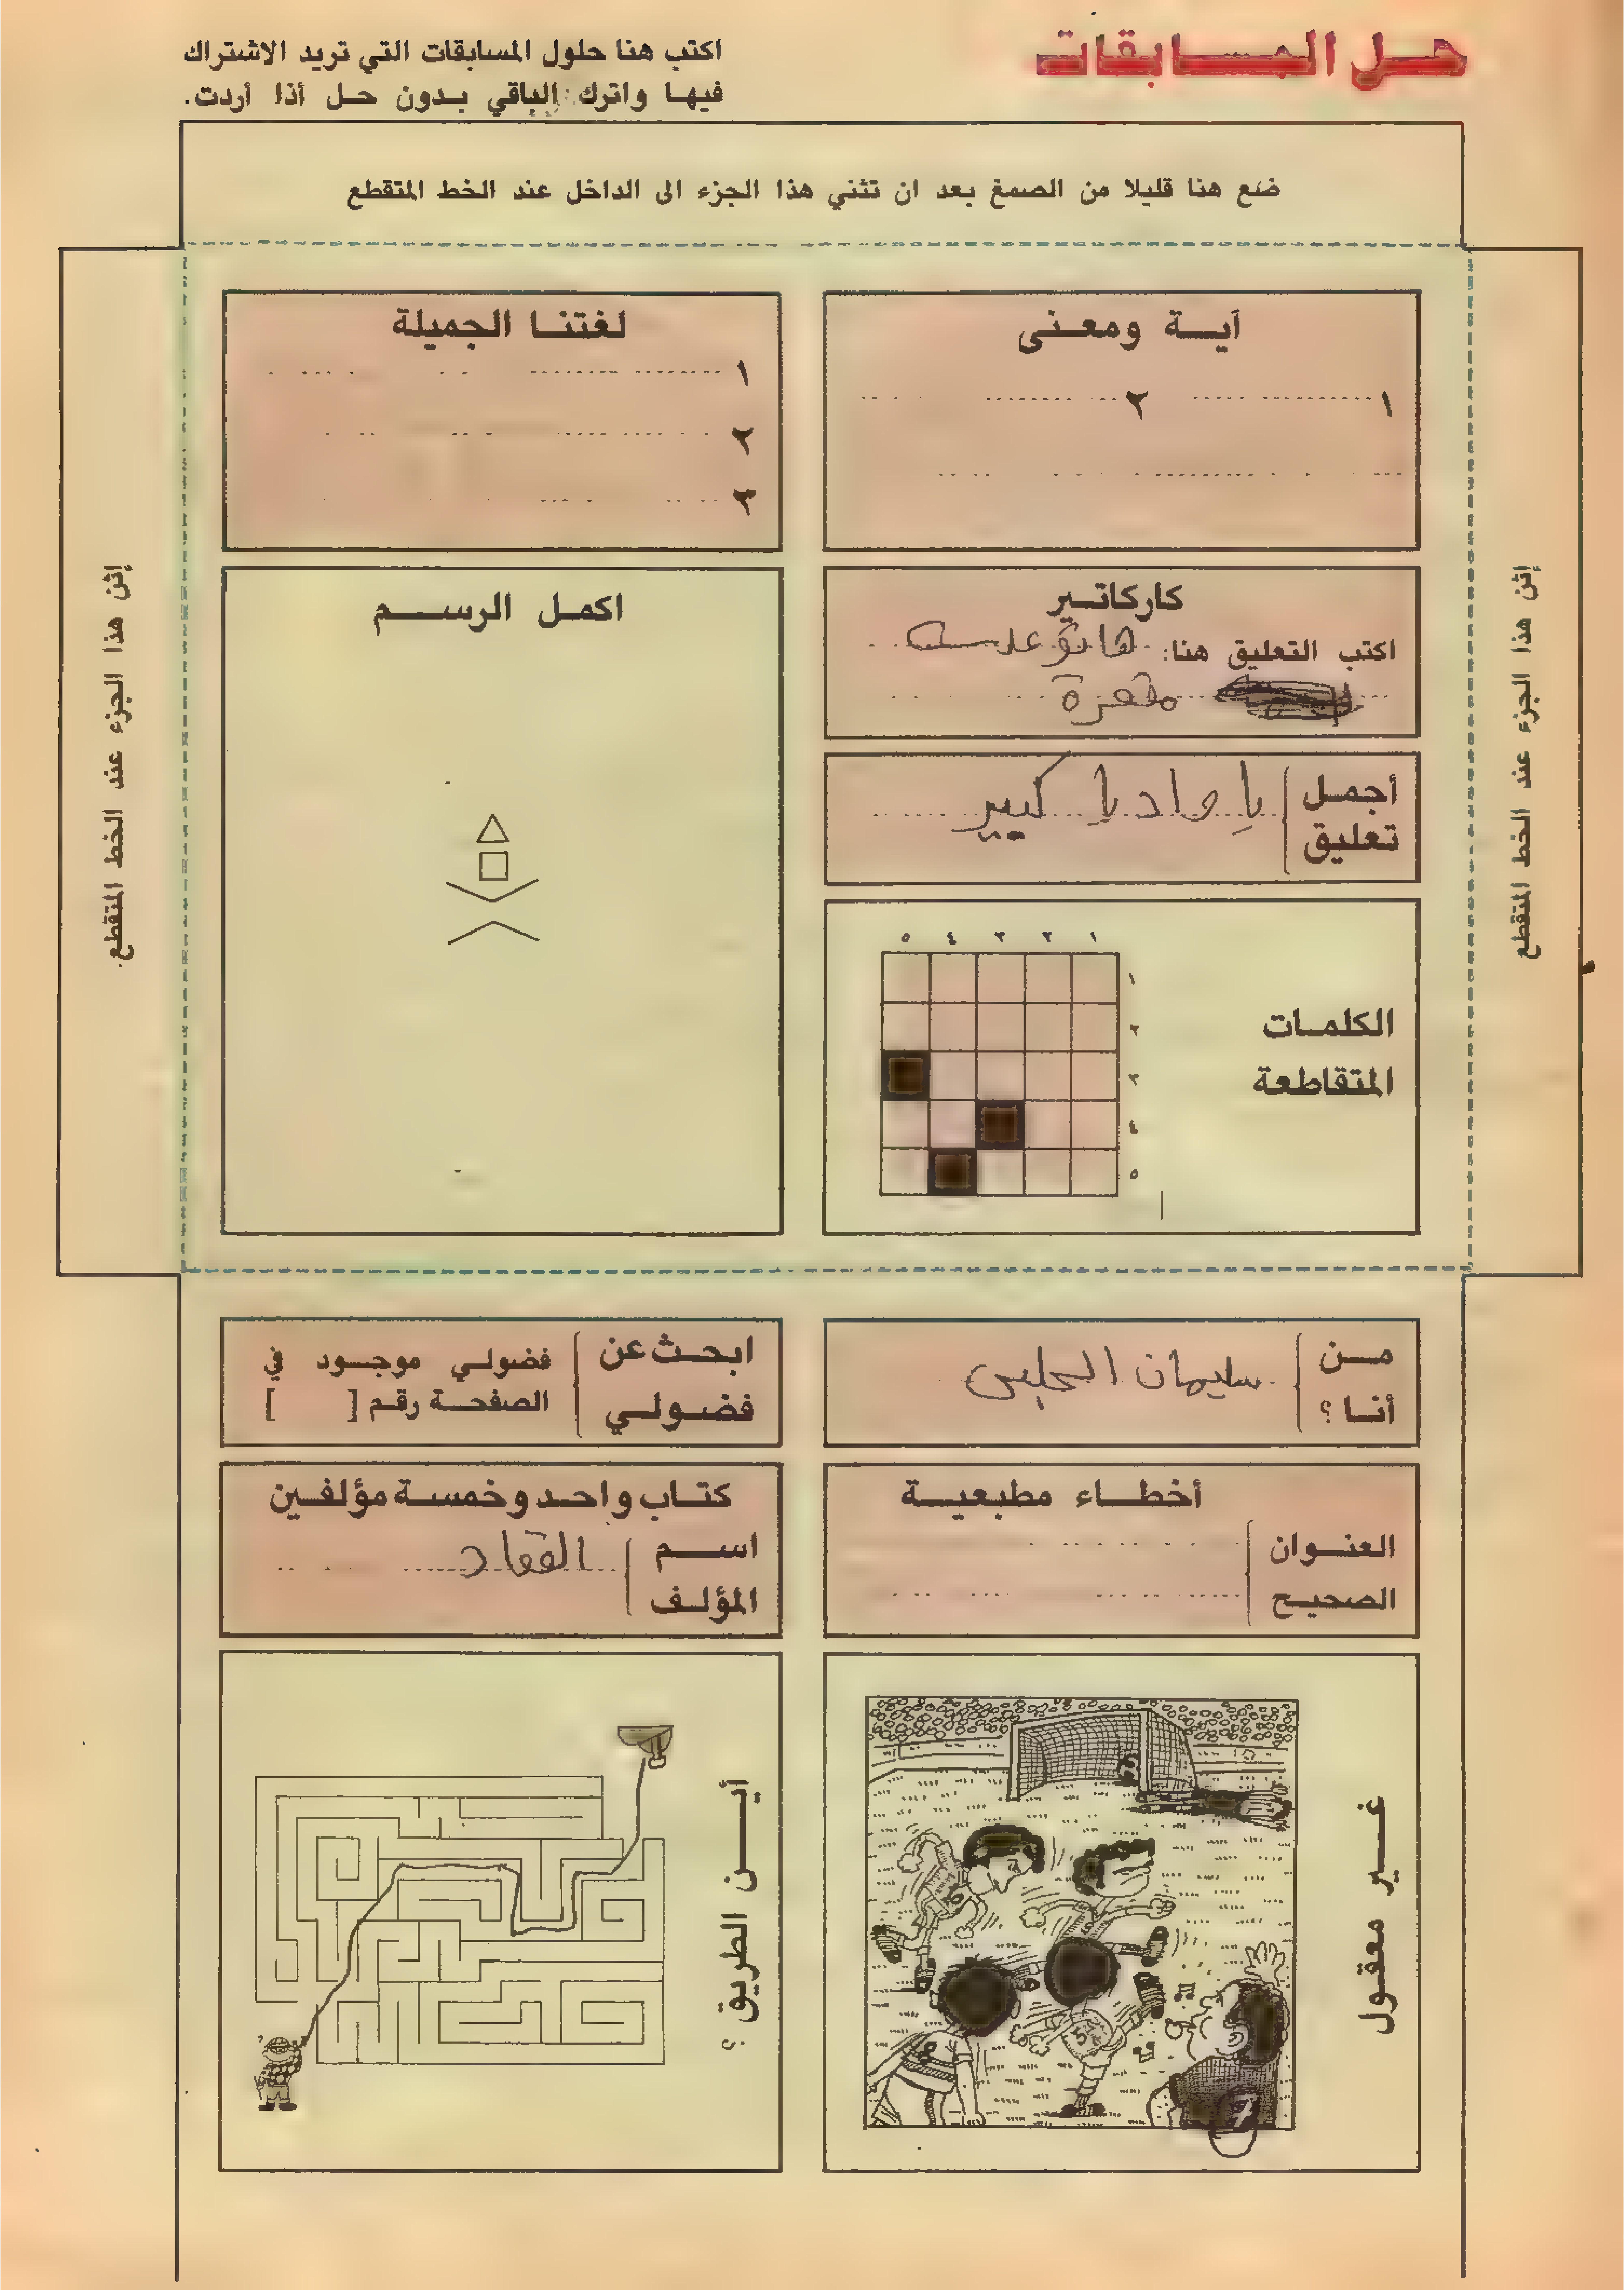 حل المسابقات
اكتب هنا حلول المسابقات التي تريد الاشتراك
فيها واترك الباقي بدون حل أذا أردت.
ضع هنا قليلا من الصمغ بعد ان تثني هذا الجزء الى الداخل عند الخط المتقطع
إثن هذا الجزء عند الخط المتقطع
آية ومعنى
١ ٢
لغتنا الجميلة
١
٢
٣
كاركاتير
اكتب التعليق هنا: هاتو عدسة
مقعرة
أجمل
تعليق
يا واد يا كبير
اكمل الرسم
الكلمات
المتقاطعة
١ ٢ ٣ ٤ ٥
١
٢
٣
٤
٥
إثن هذا الجزء عند الخط المتقطع.
من
أنا ؟
سليمان الحلبى
ابحث عن
فضولي
فضولي موجود في
الصفحة رقم [ ]
أخطاء مطبعية
العنوان
الصحيح
كتاب واحد وخمسة مؤلفين
اسم
المؤلف
العقاد
غير معقول
أين الطريق ؟